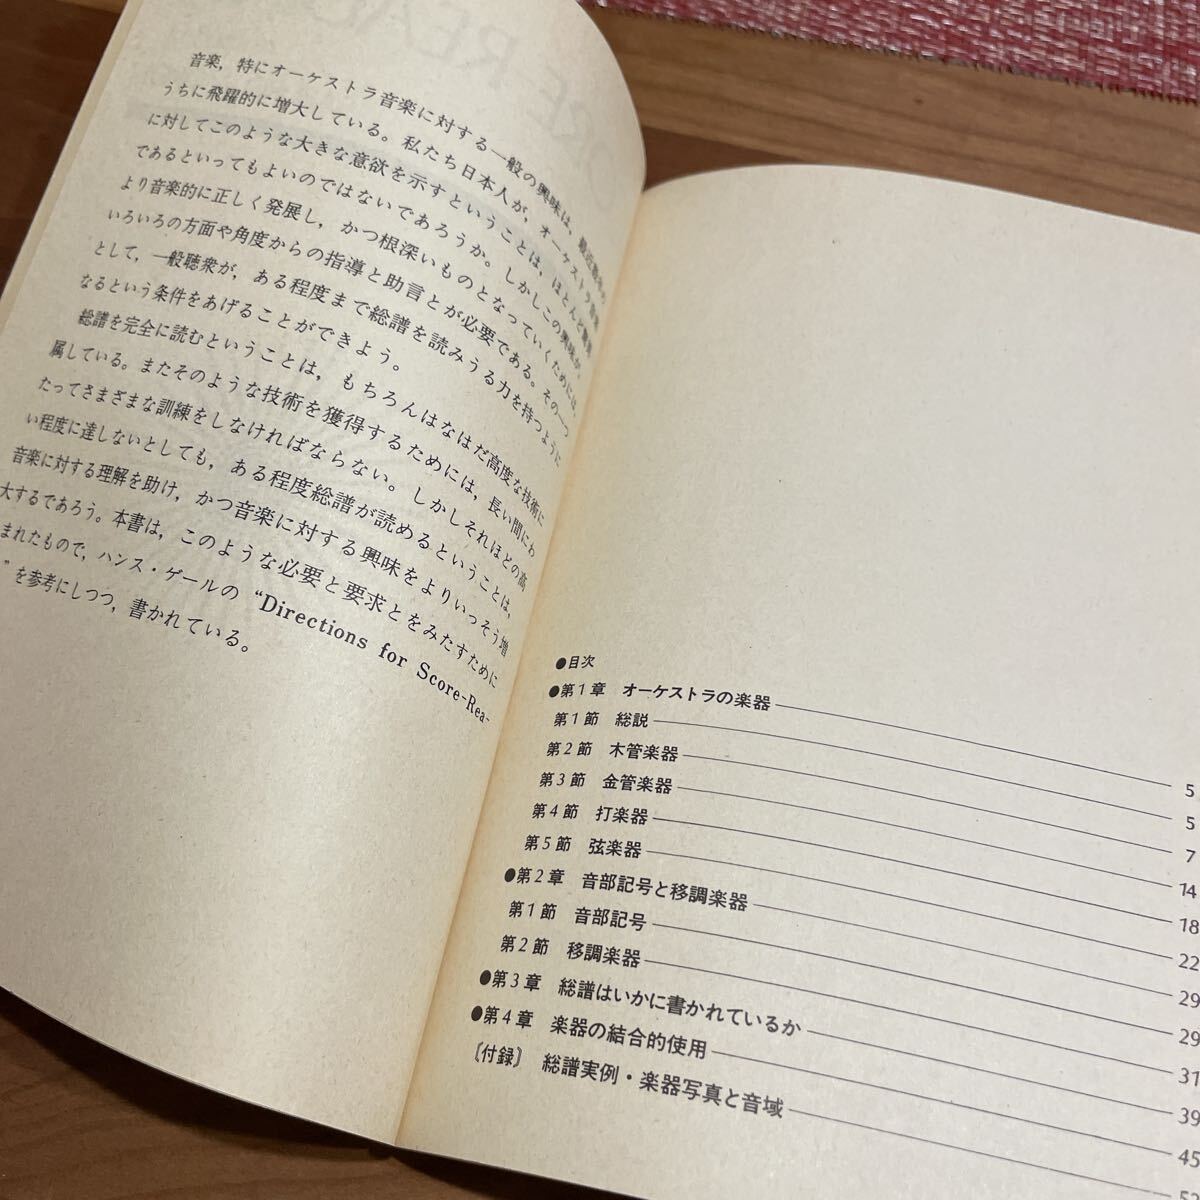 音楽，特にオーケストラ音楽に対する一般の興味は，最近数年の
うちに飛躍的に増大している。私たち日本人が，オーケストラ音楽
に対してこのような大きな意欲を示すということは，ほとんど驚異
であるといってもよいのではないであろうか。しかしこの興味が，
より音楽的に正しく発展し，かつ根深いものとなっていくためには，
いろいろの方面や角度からの指導と助言とが必要である。その一つ
として，一般聴衆が，ある程度まで総譜を読みうる力を持つように
なるという条件をあげることができよう。
総譜を完全に読むということは，もちろんはなはだ高度な技術に
属している。またそのような技術を獲得するためには，長い間にわ
たってさまざまな訓練をしなければならない。しかしそれほどの高
い程度に達しないとしても，ある程度総譜が読めるということは，
音楽に対する理解を助け，かつ音楽に対する興味をよりいっそう増
大するであろう。本書は，このような必要と要求とをみたすために
まれたもので，ハンス・ゲールの“Directions for Score-Rea-
”を参考にしつつ，書かれている。
●目次
●第1章 オーケストラの楽器 5
第1節 総説 5
第2節 木管楽器 7
第3節 金管楽器 14
第4節 打楽器 18
第5節 弦楽器 22
●第2章 音部記号と移調楽器 29
第1節 音部記号 29
第2節 移調楽器 31
●第3章 総譜はいかに書かれているか 39
●第4章 楽器の結合的使用 45
〔付録〕 総譜実例・楽器写真と音域